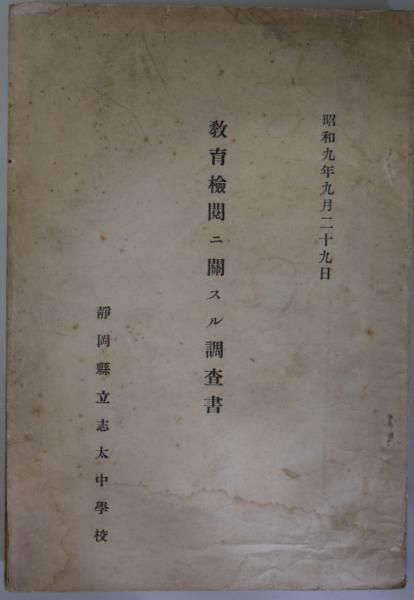 昭和九年九月二十九日
教育檢閱ニ關スル調査書
靜岡縣立志太中學校